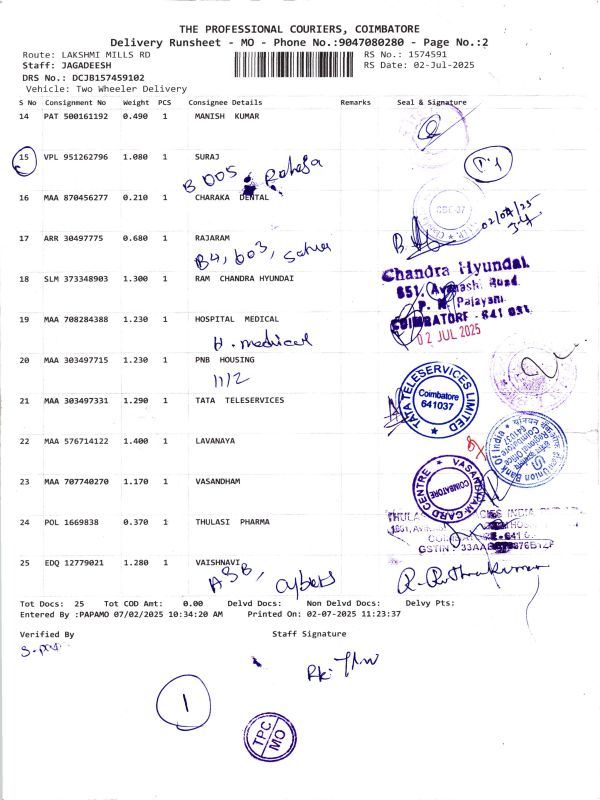 THE PROFESSIONAL COURIERS, COIMBATORE
Delivery Runsheet - MO - Phone No.:9047080280 - Page No.:2
Route: LAKSHMI MILLS RD RS No.: 1574591
Staff: JAGADEESH RS Date: 02-Jul-2025
DRS No.: DCJB157459102
Vehicle: Two Wheeler Delivery
S No Consignment No Weight PCS Consignee Details Remarks Seal & Signature
14 PAT 500161192 0.490 1 MANISH KUMAR
15 VPL 951262796 1.080 1 SURAJ
B 005, Raheja
16 MAA 870456277 0.210 1 CHARAKA DENTAL
02/07/25
17 ARR 30497775 0.680 1 RAJARAM
B4, 603,
18 SLM 373348903 1.300 1 RAM CHANDRA HYUNDAI
Chandra Hyundai
651, Avinashi Road,
P. N. Palayam
COIMBATORE - 641 037.
02 JUL 2025
19 MAA 708284388 1.230 1 HOSPITAL MEDICAL
H. medical
20 MAA 303497715 1.230 1 PNB HOUSING
11/2
21 MAA 303497331 1.290 1 TATA TELESERVICES
TATA TELESERVICES LIMITED
Coimbatore
641037
22 MAA 576714122 1.400 1 LAVANAYA
Union Bank Of India
Regional Office
Coimbatore
641037
23 MAA 707740270 1.170 1 VASANDHAM
VASANDHAM CARD CENTRE
COIMBATORE
24 POL 1669838 0.370 1 THULASI PHARMA
25 EDQ 12779021 1.280 1 VAISHNAVI
Tot Docs: 25 Tot COD Amt: 0.00 Delvd Docs: Non Delvd Docs: Delvy Pts:
Entered By :PAPAMO 07/02/2025 10:34:20 AM Printed On: 02-07-2025 11:23:37
Verified By Staff Signature
1
TPC
MO